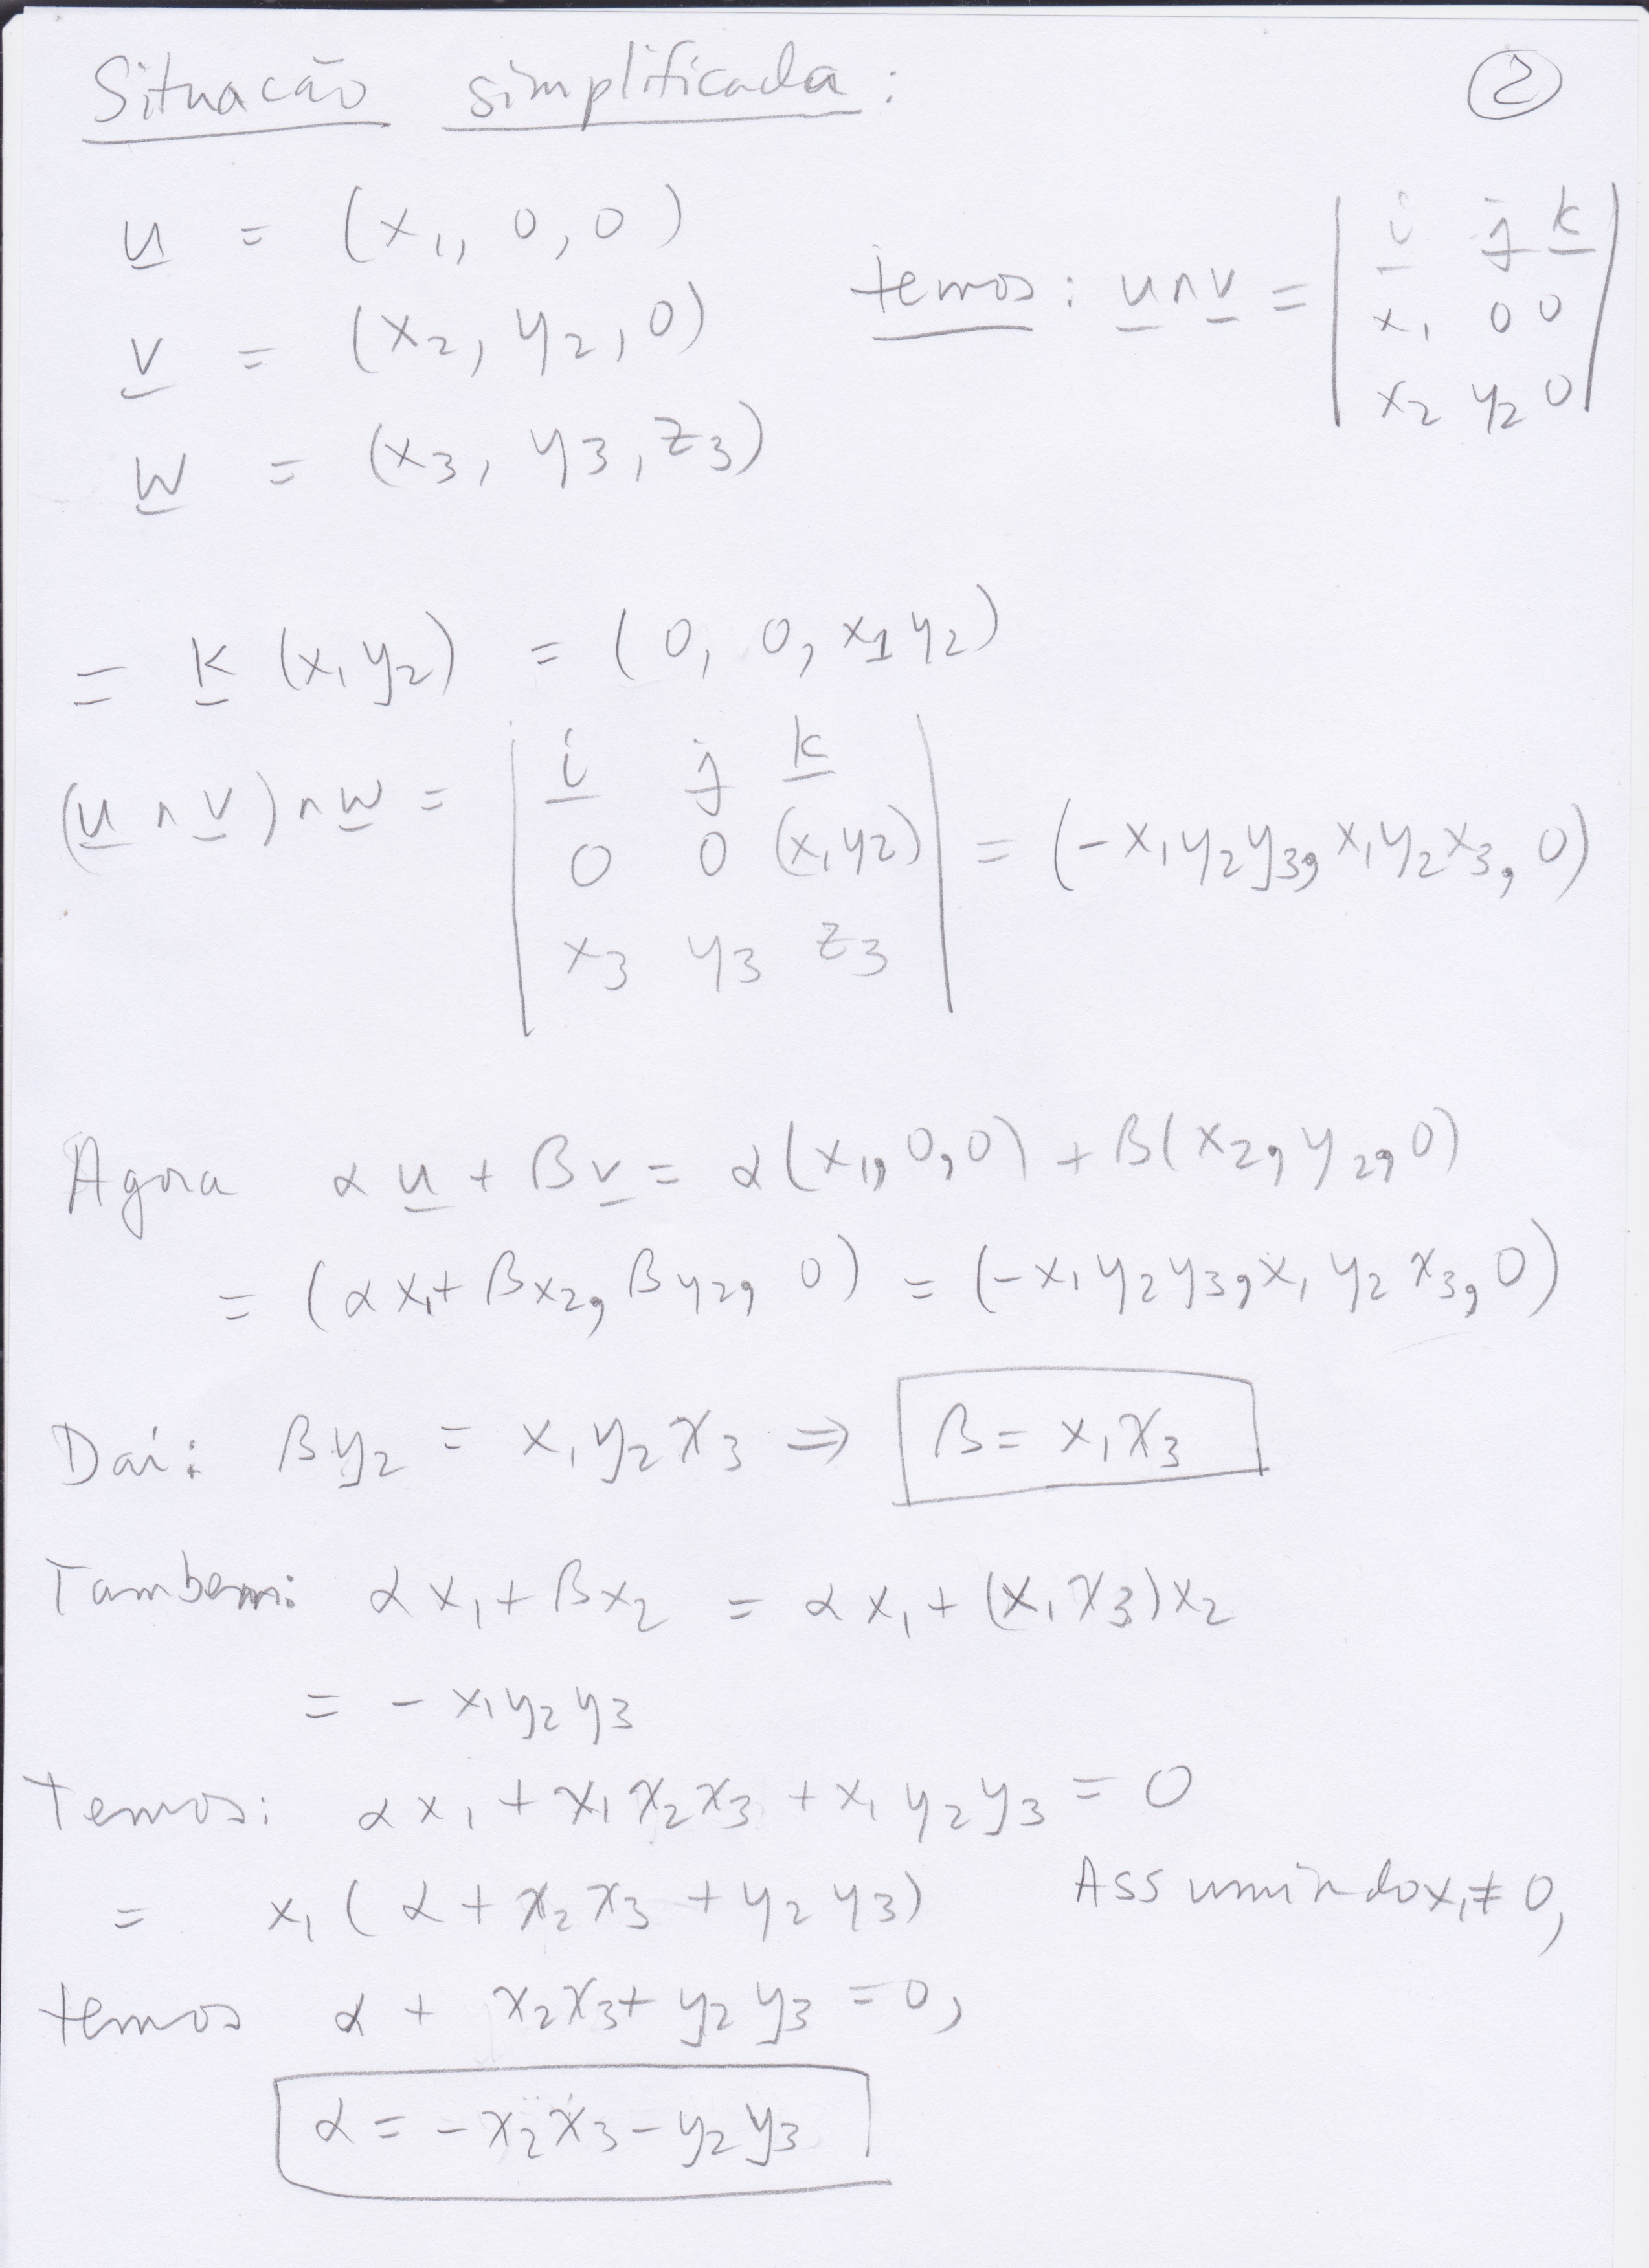 Situacão simplificada: ②
u = (x₁, 0, 0)
v = (x₂, y₂, 0)
w = (x₃, y₃, z₃)
temos: u ∧ v = | i j k |
| x₁ 0 0 |
| x₂ y₂ 0 |
= k (x₁y₂) = (0, 0, x₁y₂)
(u ∧ v) ∧ w = | i j k |
| 0 0 (x₁y₂) | = (-x₁y₂y₃, x₁y₂x₃, 0)
| x₃ y₃ z₃ |
Agora αu + βv = α(x₁, 0, 0) + β(x₂, y₂, 0)
= (αx₁ + βx₂, βy₂, 0) = (-x₁y₂y₃, x₁y₂x₃, 0)
Daí: βy₂ = x₁y₂x₃ ⇒ β = x₁x₃
Tambem: αx₁ + βx₂ = αx₁ + (x₁x₃)x₂
= -x₁y₂y₃
Temos: αx₁ + x₁x₂x₃ + x₁y₂y₃ = 0
= x₁(α + x₂x₃ + y₂y₃) Assumindo x₁ ≠ 0,
temos α + x₂x₃ + y₂y₃ = 0,
α = -x₂x₃ - y₂y₃